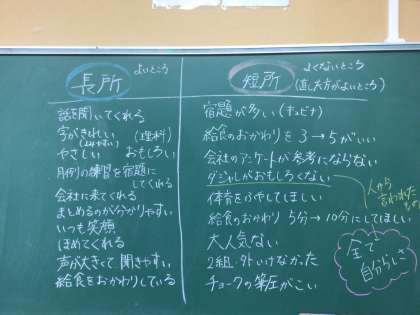 長所
よいところ
話を聞いてくれる
字がきれい (理科)
(よみやすい)
やさしい おもしろい
月例の練習を宿題に
してくれる
会社に来てくれる
まとめるのが分かりやすい
いつも笑顔
ほめてくれる
声が大きくて聞きやすい
給食をおかわりしている
短所
よくないところ
(直した方がよいところ)
宿題が多い(キュビナ)
給食のおかわりを3→5がいい
会社のアンケートが参考にならない
ダジャレがおもしろくない
体育をふやしてほしい
給食のおかわり 5分→10分にしてほしい
大人気ない
2組・外いけなかった
チョークの筆圧がこい
人から
言われるもの
全て
自分らしさ